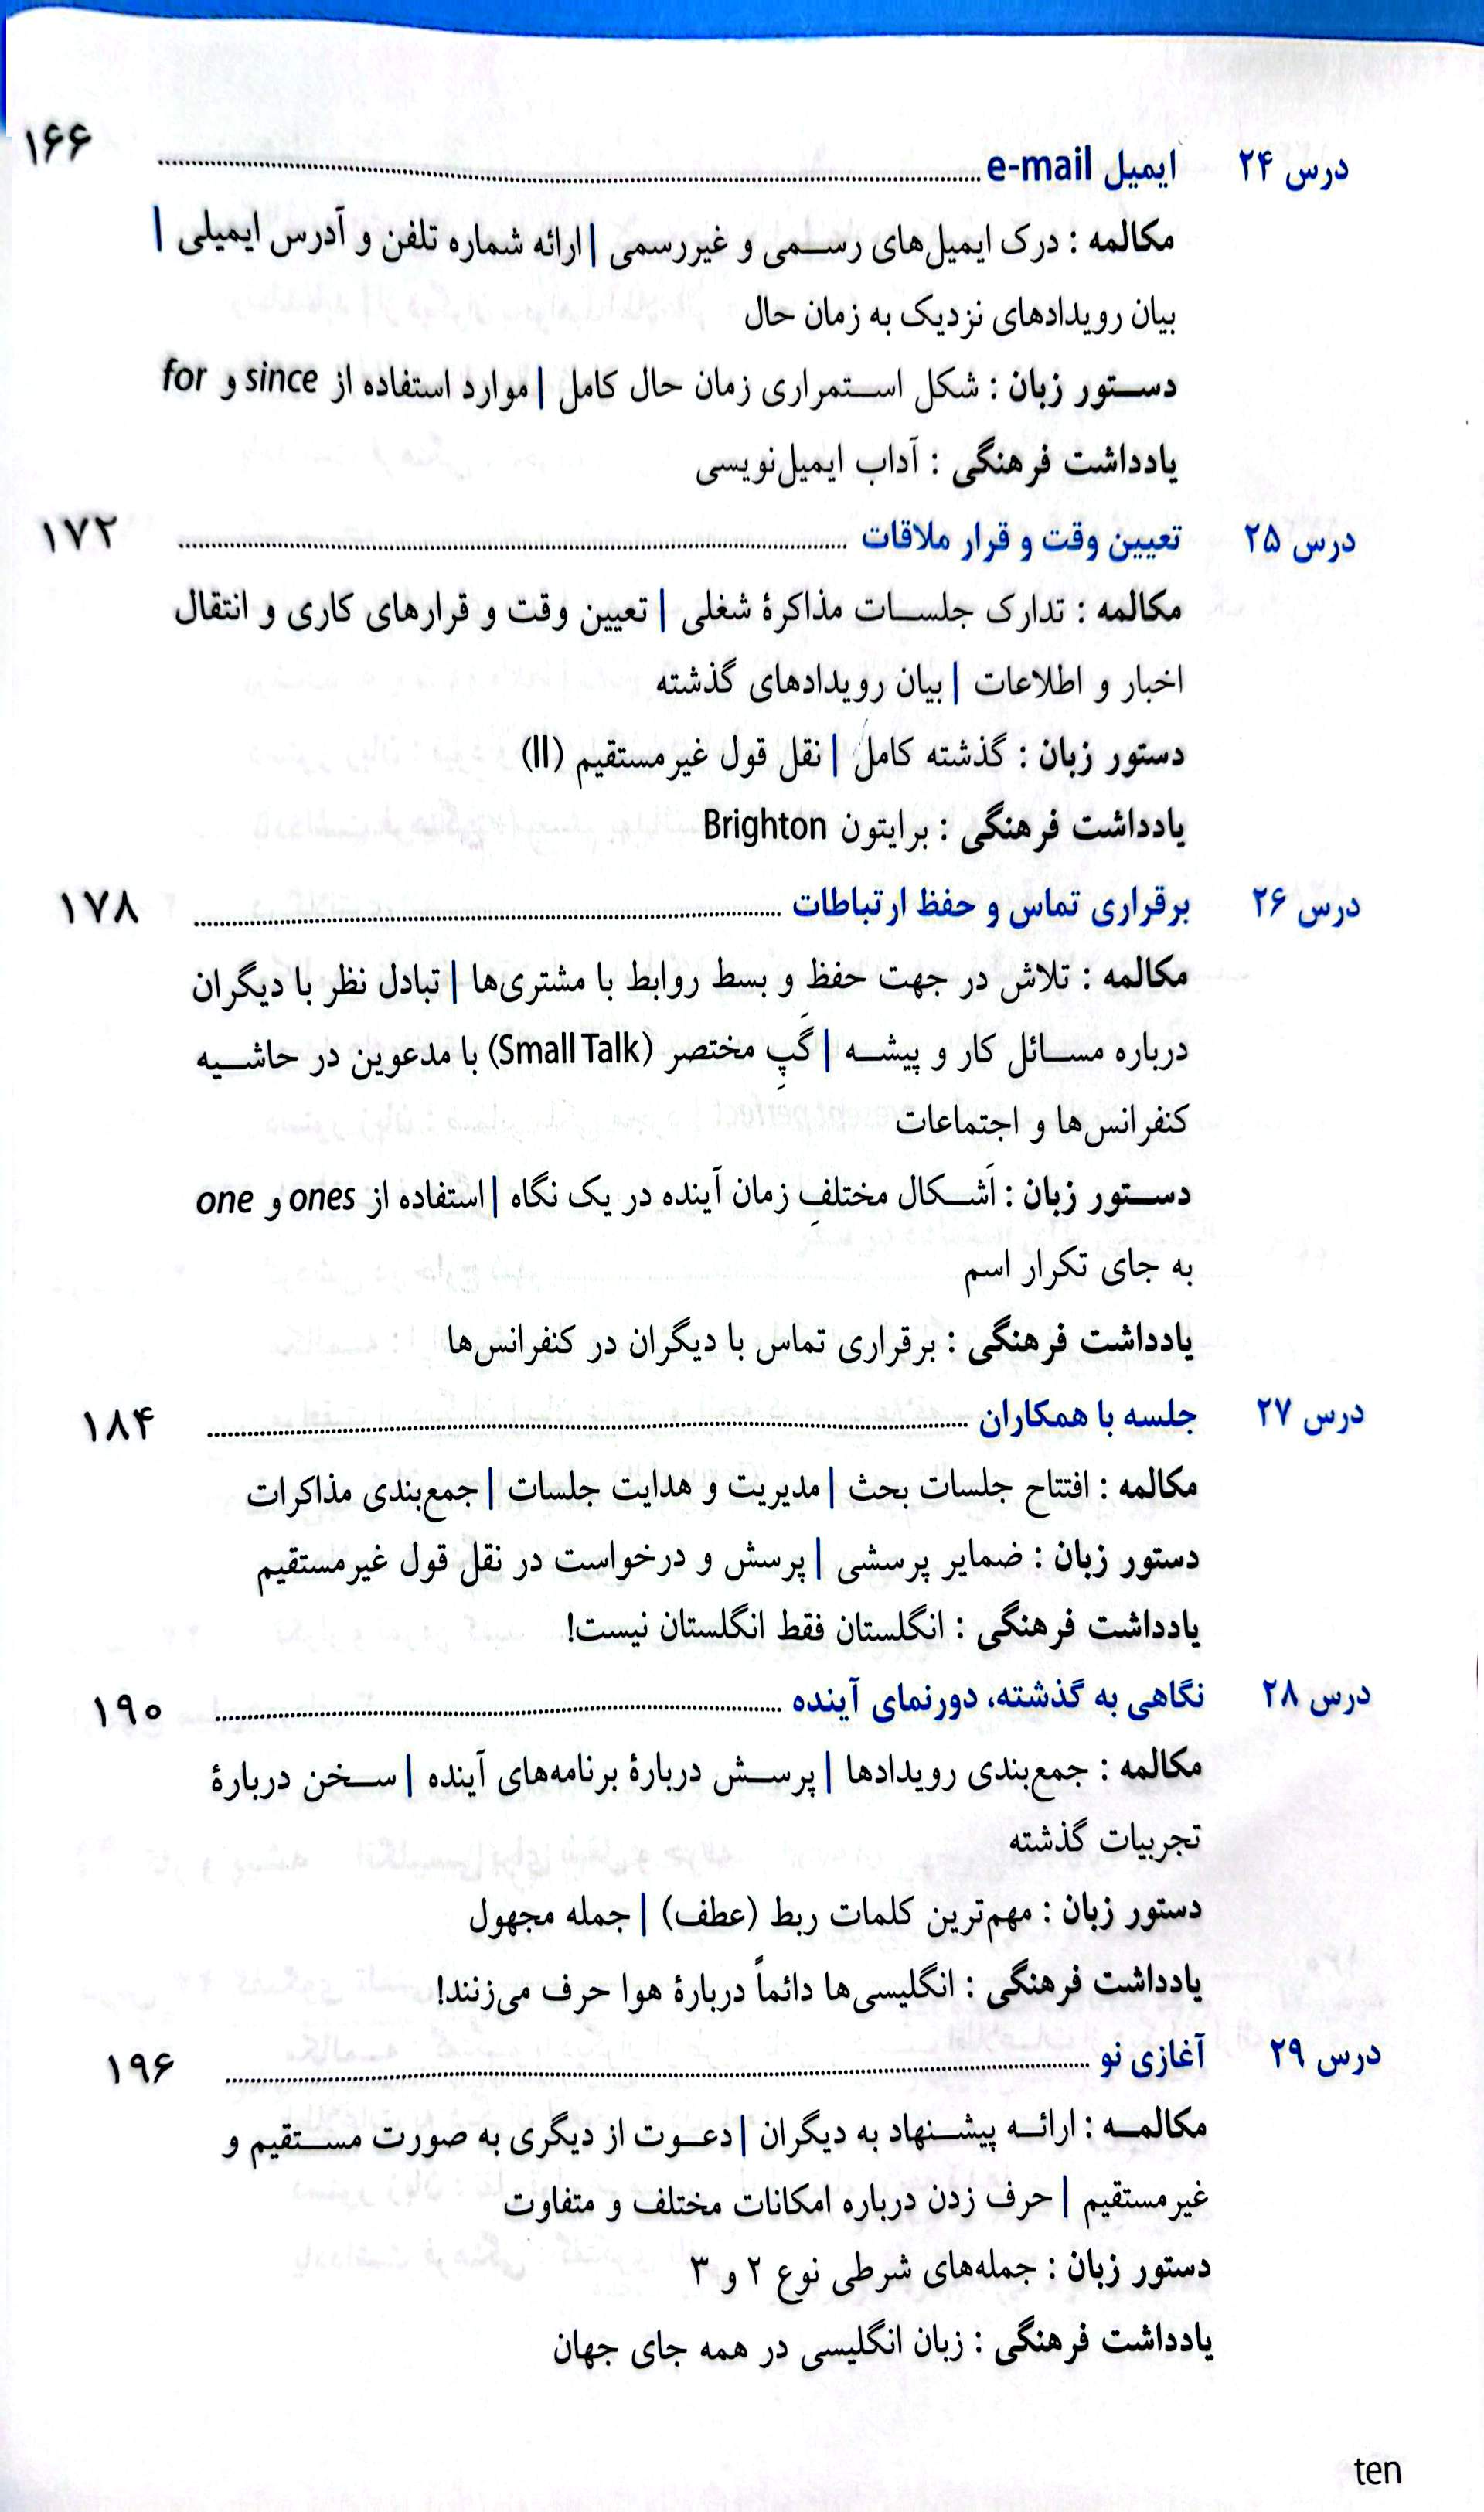 درس ۲۴ ایمیل e-mail ........ ۱۶۶
مکالمه : درک ایمیل‌های رسمی و غیررسمی | ارائه شماره تلفن و آدرس ایمیلی |
بیان رویدادهای نزدیک به زمان حال
دستور زبان : شکل استمراری زمان حال کامل | موارد استفاده از since و for
یادداشت فرهنگی : آداب ایمیل‌نویسی
درس ۲۵ تعیین وقت و قرار ملاقات ........ ۱۷۲
مکالمه : تدارک جلسات مذاکرهٔ شغلی | تعیین وقت و قرارهای کاری و انتقال
اخبار و اطلاعات | بیان رویدادهای گذشته
دستور زبان : گذشته کامل | نقل قول غیرمستقیم (II)
یادداشت فرهنگی : برایتون Brighton
درس ۲۶ برقراری تماس و حفظ ارتباطات ........ ۱۷۸
مکالمه : تلاش در جهت حفظ و بسط روابط با مشتری‌ها | تبادل نظر با دیگران
درباره مسائل کار و پیشه | گَپِ مختصر (Small Talk) با مدعوین در حاشیه
کنفرانس‌ها و اجتماعات
دستور زبان : اَشکال مختلفِ زمان آینده در یک نگاه | استفاده از ones و one
به جای تکرار اسم
یادداشت فرهنگی : برقراری تماس با دیگران در کنفرانس‌ها
درس ۲۷ جلسه با همکاران ........ ۱۸۴
مکالمه : افتتاح جلسات بحث | مدیریت و هدایت جلسات | جمع‌بندی مذاکرات
دستور زبان : ضمایر پرسشی | پرسش و درخواست در نقل قول غیرمستقیم
یادداشت فرهنگی : انگلستان فقط انگلستان نیست!
درس ۲۸ نگاهی به گذشته، دورنمای آینده ........ ۱۹۰
مکالمه : جمع‌بندی رویدادها | پرسش دربارهٔ برنامه‌های آینده | سخن دربارهٔ
تجربیات گذشته
دستور زبان : مهم‌ترین کلمات ربط (عطف) | جمله مجهول
یادداشت فرهنگی : انگلیسی‌ها دائماً دربارهٔ هوا حرف می‌زنند!
درس ۲۹ آغازی نو ........ ۱۹۶
مکالمه : ارائه پیشنهاد به دیگران | دعوت از دیگری به صورت مستقیم و
غیرمستقیم | حرف زدن درباره امکانات مختلف و متفاوت
دستور زبان : جمله‌های شرطی نوع ۲ و ۳
یادداشت فرهنگی : زبان انگلیسی در همه جای جهان
ten